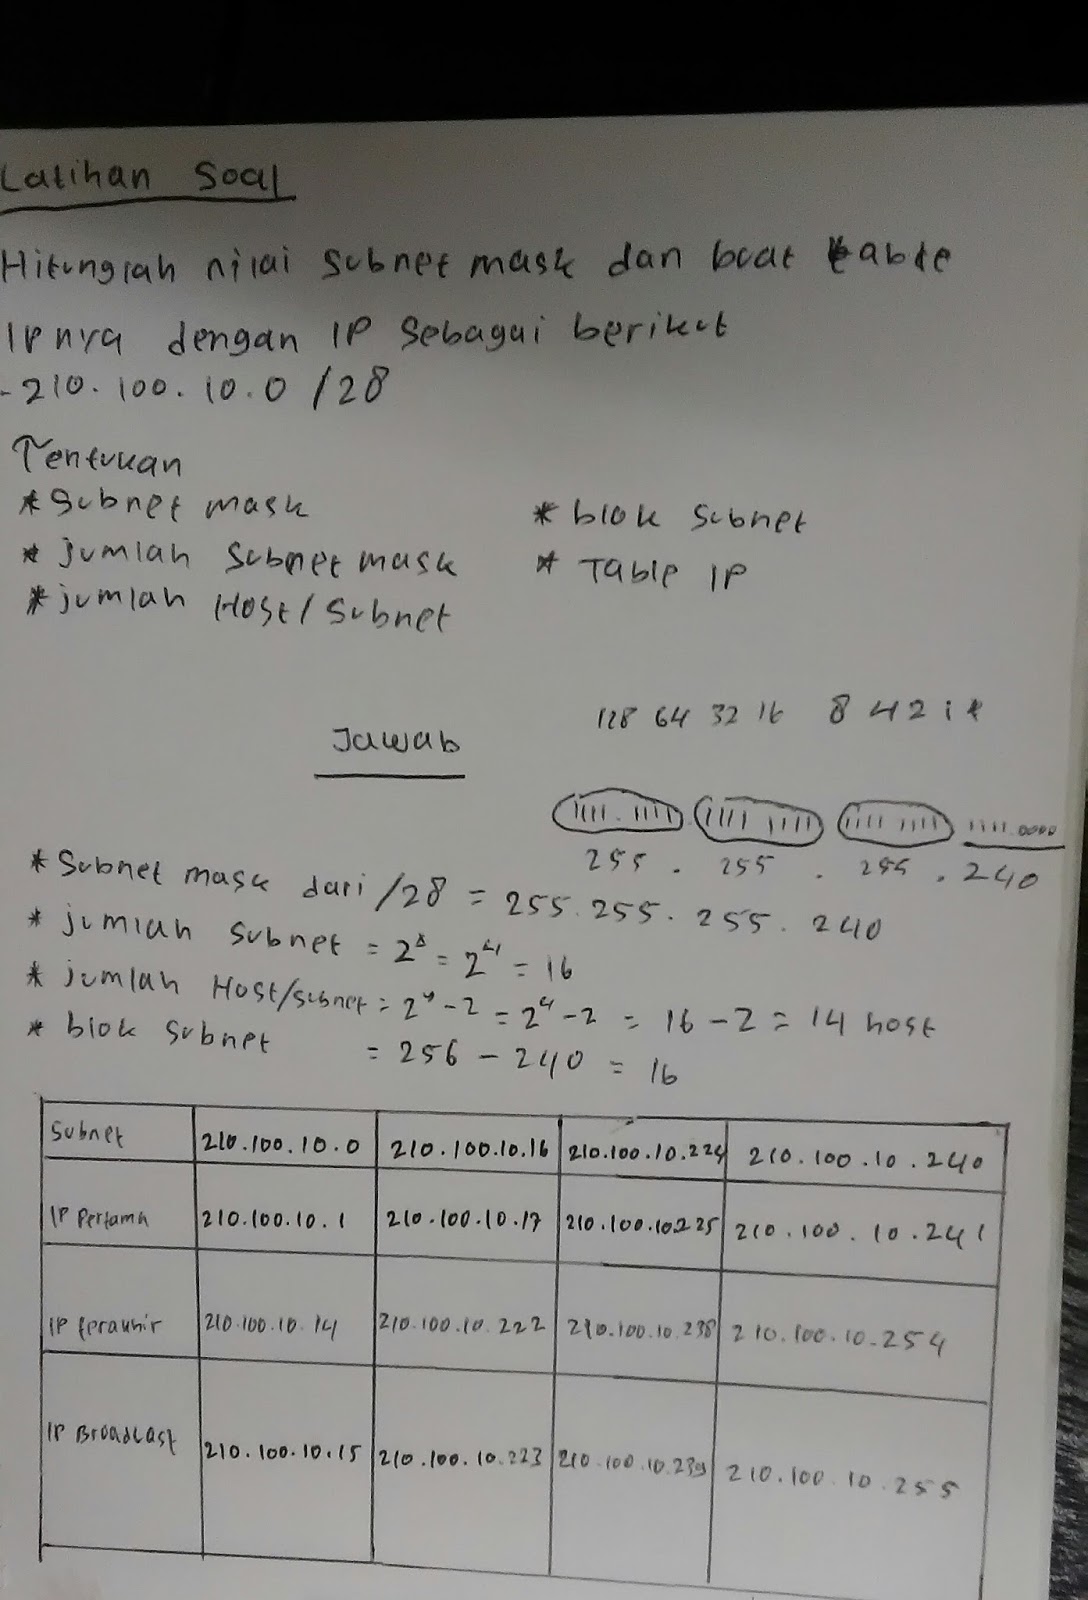 Latihan Soal
Hitunglah nilai subnet mask dan buat table
IPnya dengan IP sebagai berikut
- 210.100.10.0 /28
Tentukan
* Subnet mask
* blok subnet
* jumlah subnet mask
* Table IP
* jumlah Host/subnet
128 64 32 16 8 4 2 1 *
Jawab
1111 1111 1111 1111 1111 1111 1111.0000
255 . 255 . 255 . 240
* Subnet mask dari /28 = 255.255.255.240
* jumlah subnet = 2ˣ = 2⁴ = 16
* jumlah Host/subnet = 2ʸ - 2 = 2⁴ - 2 = 16 - 2 = 14 host
* blok subnet = 256 - 240 = 16
Subnet 210.100.10.0 210.100.10.16 210.100.10.224 210.100.10.240
IP Pertama 210.100.10.1 210.100.10.17 210.100.10.225 210.100.10.241
IP terakhir 210.100.10.14 210.100.10.222 210.100.10.238 210.100.10.254
IP Broadcast 210.100.10.15 210.100.10.223 210.100.10.239 210.100.10.255